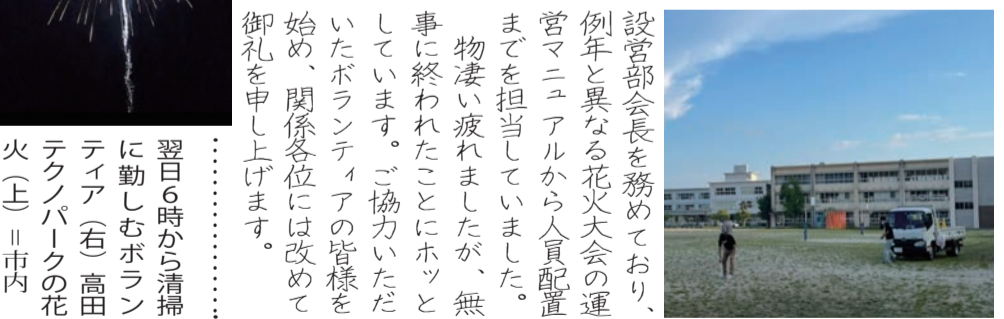 設営部会長を務めており、
例年と異なる花火大会の運
営マニュアルから人員配置
までを担当していました。
物凄い疲れましたが、無
事に終われたことにホッと
しています。ご協力いただ
いたボランティアの皆様を
始め、関係各位には改めて
御礼を申し上げます。
翌日6時から清掃
に勤しむボラン
ティア（右）高田
テクノパークの花
火（上）＝市内